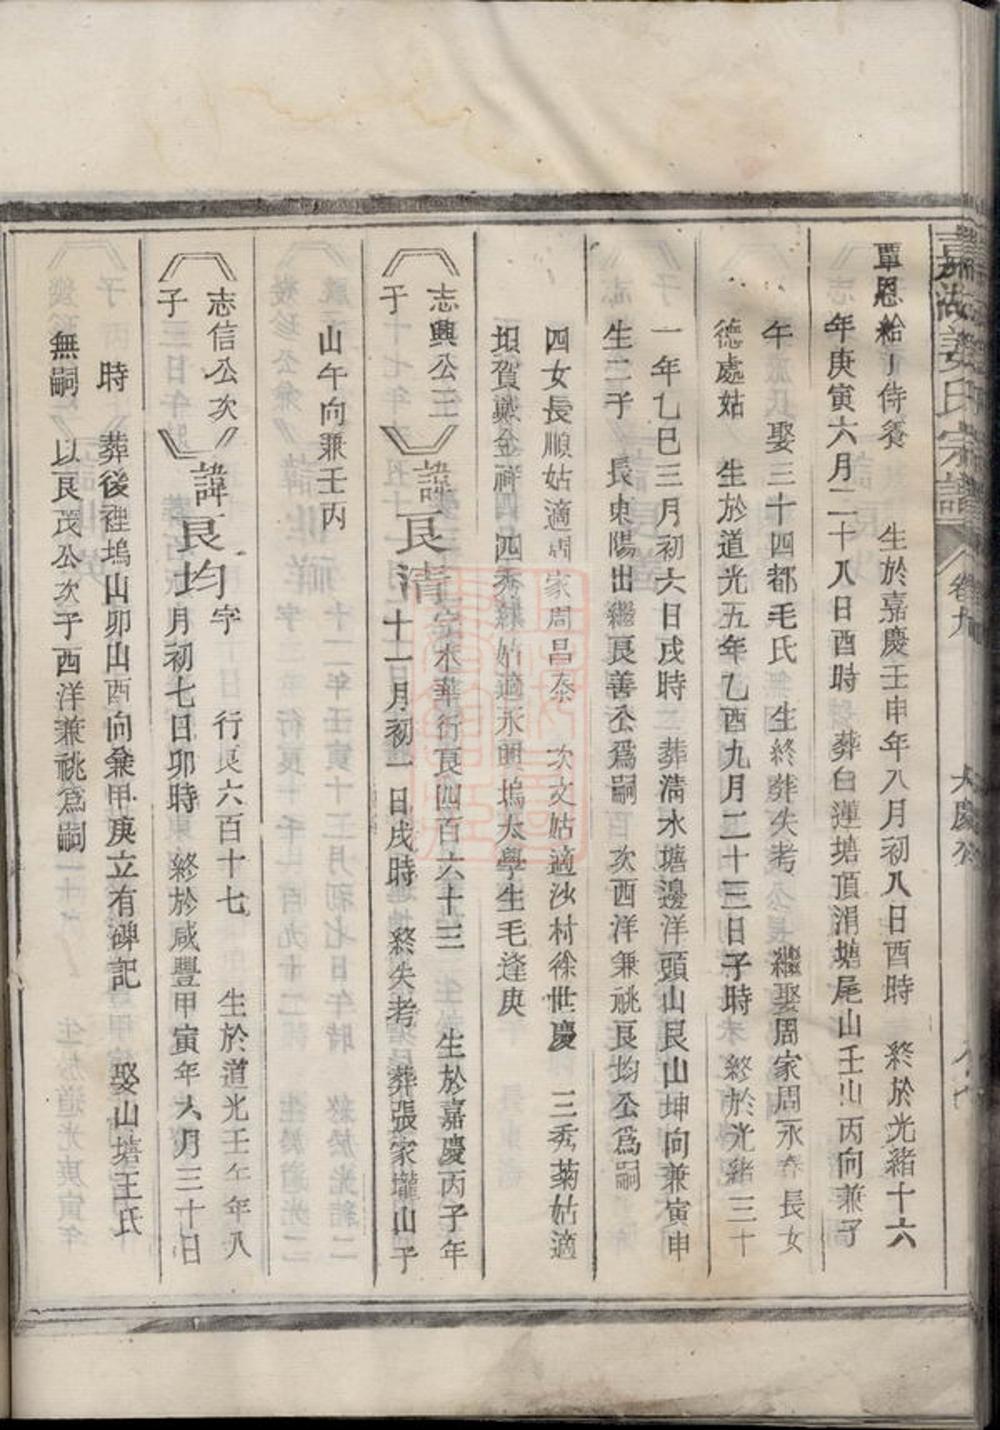 嘉湖姜氏宗譜
卷九
大慶公
覃恩給 侍養 生於嘉慶壬申年八月初八日酉時 終於光緒十六
年庚寅六月二十八日酉時 葬白蓮塘頂涓塘尾山壬山丙向兼子
午 娶三十四都毛氏 生終葬失考 繼娶周家周永春長女
德處姑 生於道光五年乙酉九月二十三日子時 終於光緒三十
一年乙巳三月初六日戌時 葬滿水塘邊洋頭山艮山坤向兼寅申
生二子 長東陽出繼良善公爲嗣 次西洋兼祧良均公爲嗣
四女長順姑適周家周昌泰 次文姑適沙村徐世慶 三秀菊姑適
垻賀 金祥 四秀 姑適永興塢太學生毛逢庚
志興公三子
諱良清 字 華行良四百六十三 生於嘉慶丙子年
十一月初一日戌時 終失考 葬張家壠山子
山午向兼壬丙
志信公次子
諱良均 字 行良六百十七 生於道光壬午年八
月初七日卯時 終於咸豐甲寅年六月三十日
時 葬後裡塢山卯山酉向兼甲庚立有碑記 娶山塘王氏
無嗣 以良茂公次子西洋兼祧爲嗣